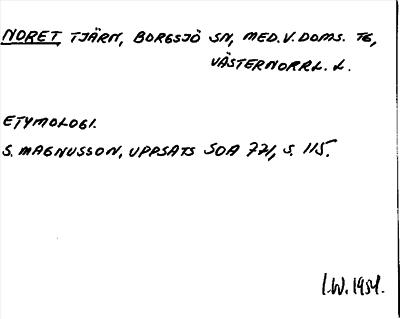 NORET, TJÄRN, BORGSJÖ SN, MED. V. DOMS. TG,
VÄSTERNORRL. L.
ETYMOLOGI.
S. MAGNUSSON, UPPSATS SOA 721, S. 115.
I.W. 1954.